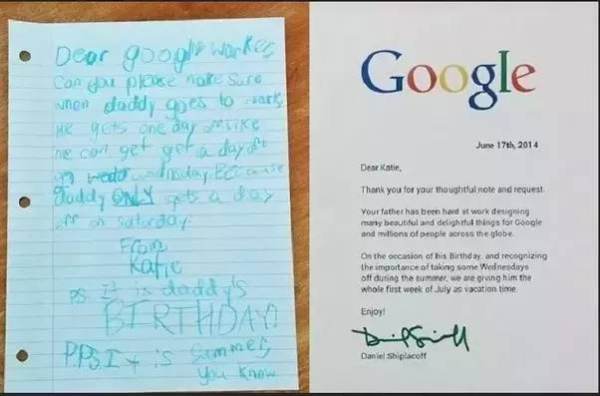 Dear google worker
Can you please make sure
when daddy goes to work
He gets one day off like
he can get get a day off
on wednesday. BEcause
daddy ONLY gets a day
off on saturday.
From
Katie
PS. It is daddy's
BIRTHDAY!
PPS. It is Summer,
You Know
Google
June 17th, 2014
Dear Katie,
Thank you for your thoughtful note and request.
Your father has been hard at work designing
many beautiful and delightful things for Google
and millions of people across the globe.
On the occasion of his Birthday, and recognizing
the importance of taking some Wednesdays
off during the summer, we are giving him the
whole first week of July as vacation time.
Enjoy!
Daniel Shiplacoff